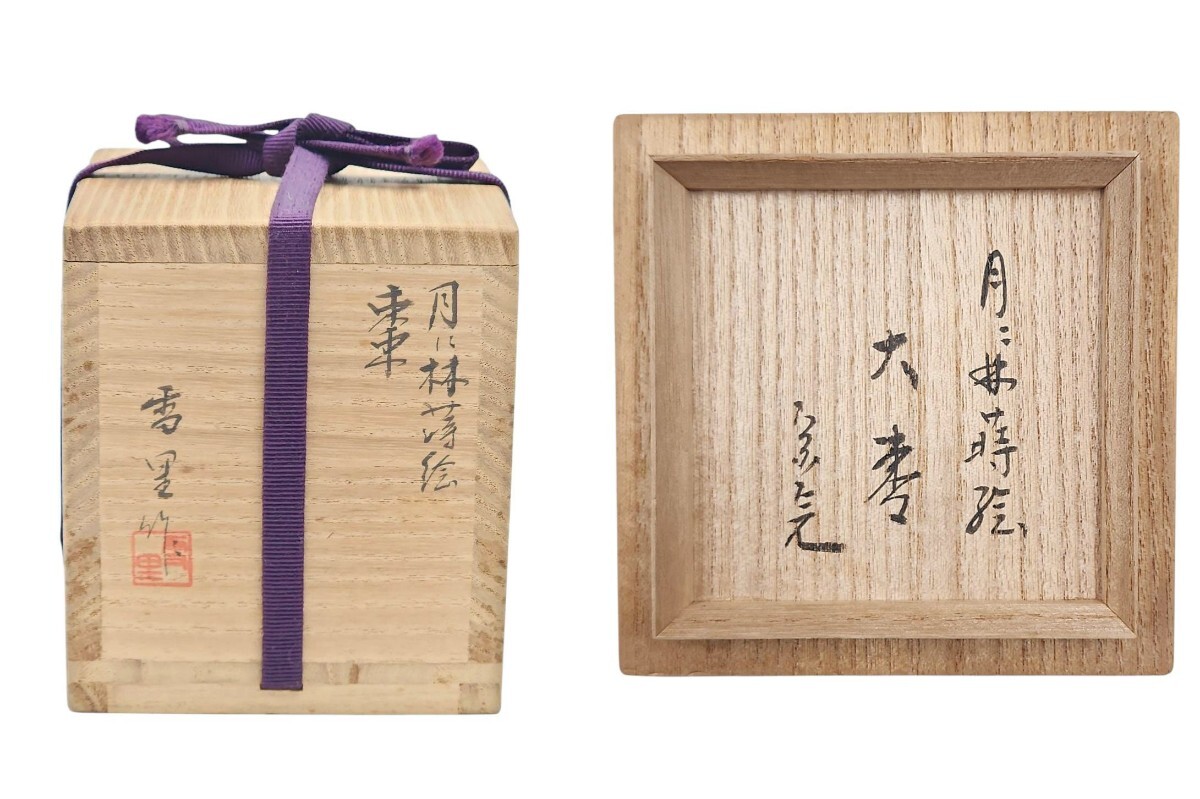 月に林蒔絵
棗
雪里作
月ニ林蒔絵
大棗